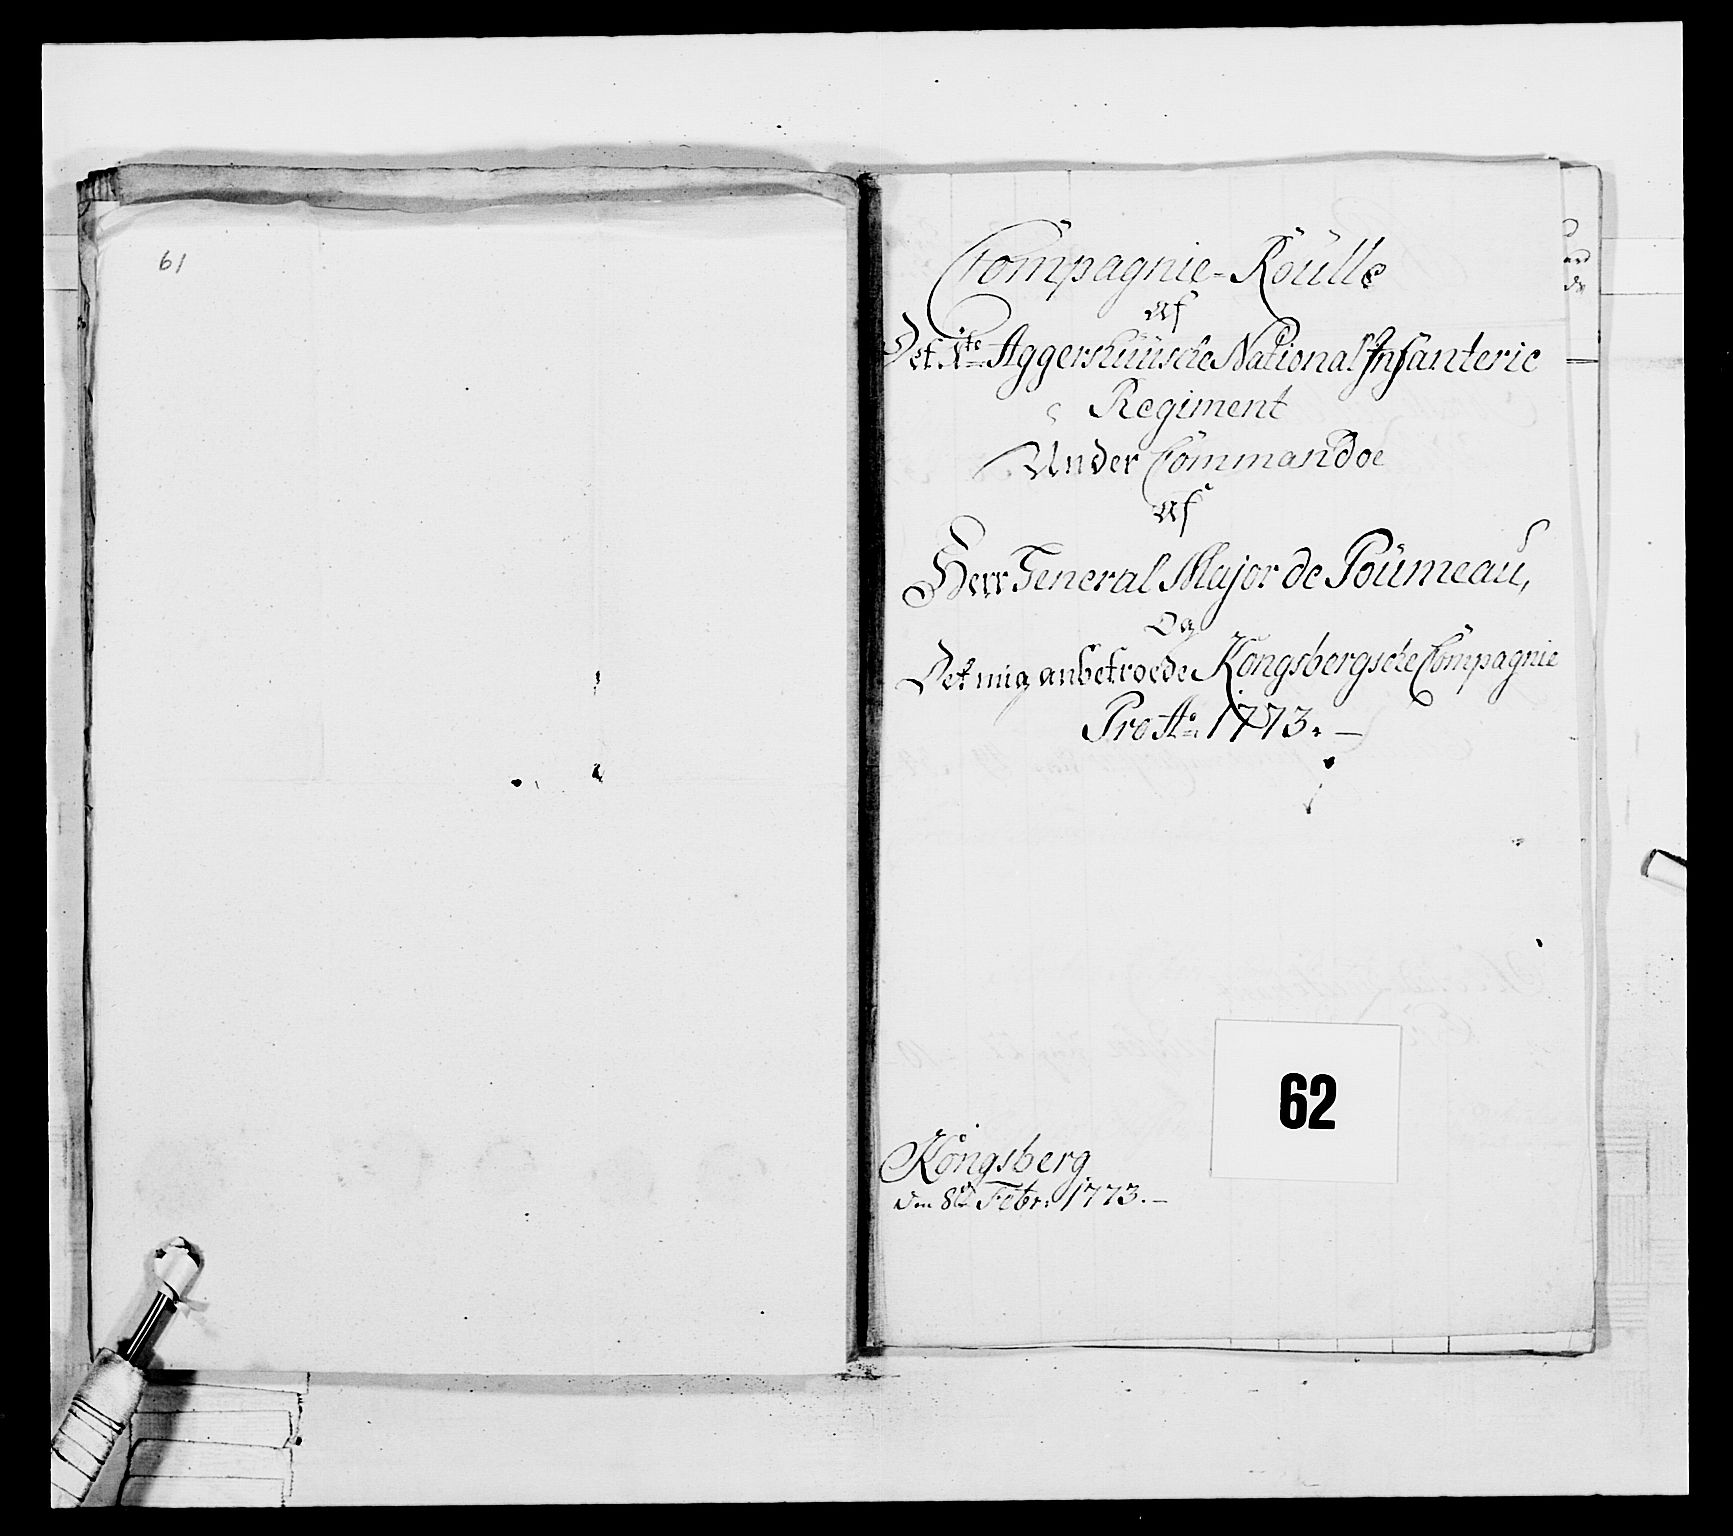 61
Compagnie-Roülle
Af
Det 1te Aggershuusche National Infanterie
Regiment
Under Commandoe
Af
Herr General Major de Poümeau,
Og
Det mig anbetroede Kongsbergsche Compagnie
Pro Ao 1773.
62
Kongsberg
den 8de Febr: 1773.